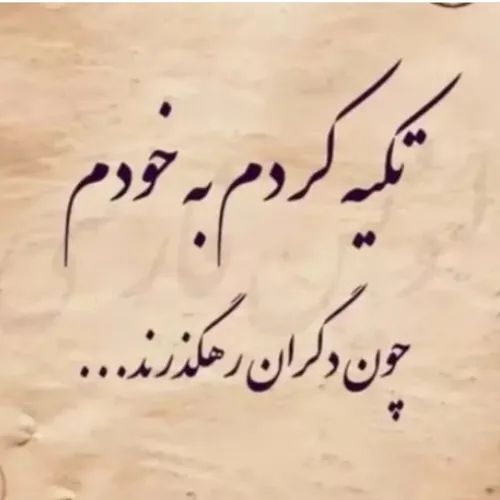 تکیه کردم به خودم
چون دگران رهگذرند...